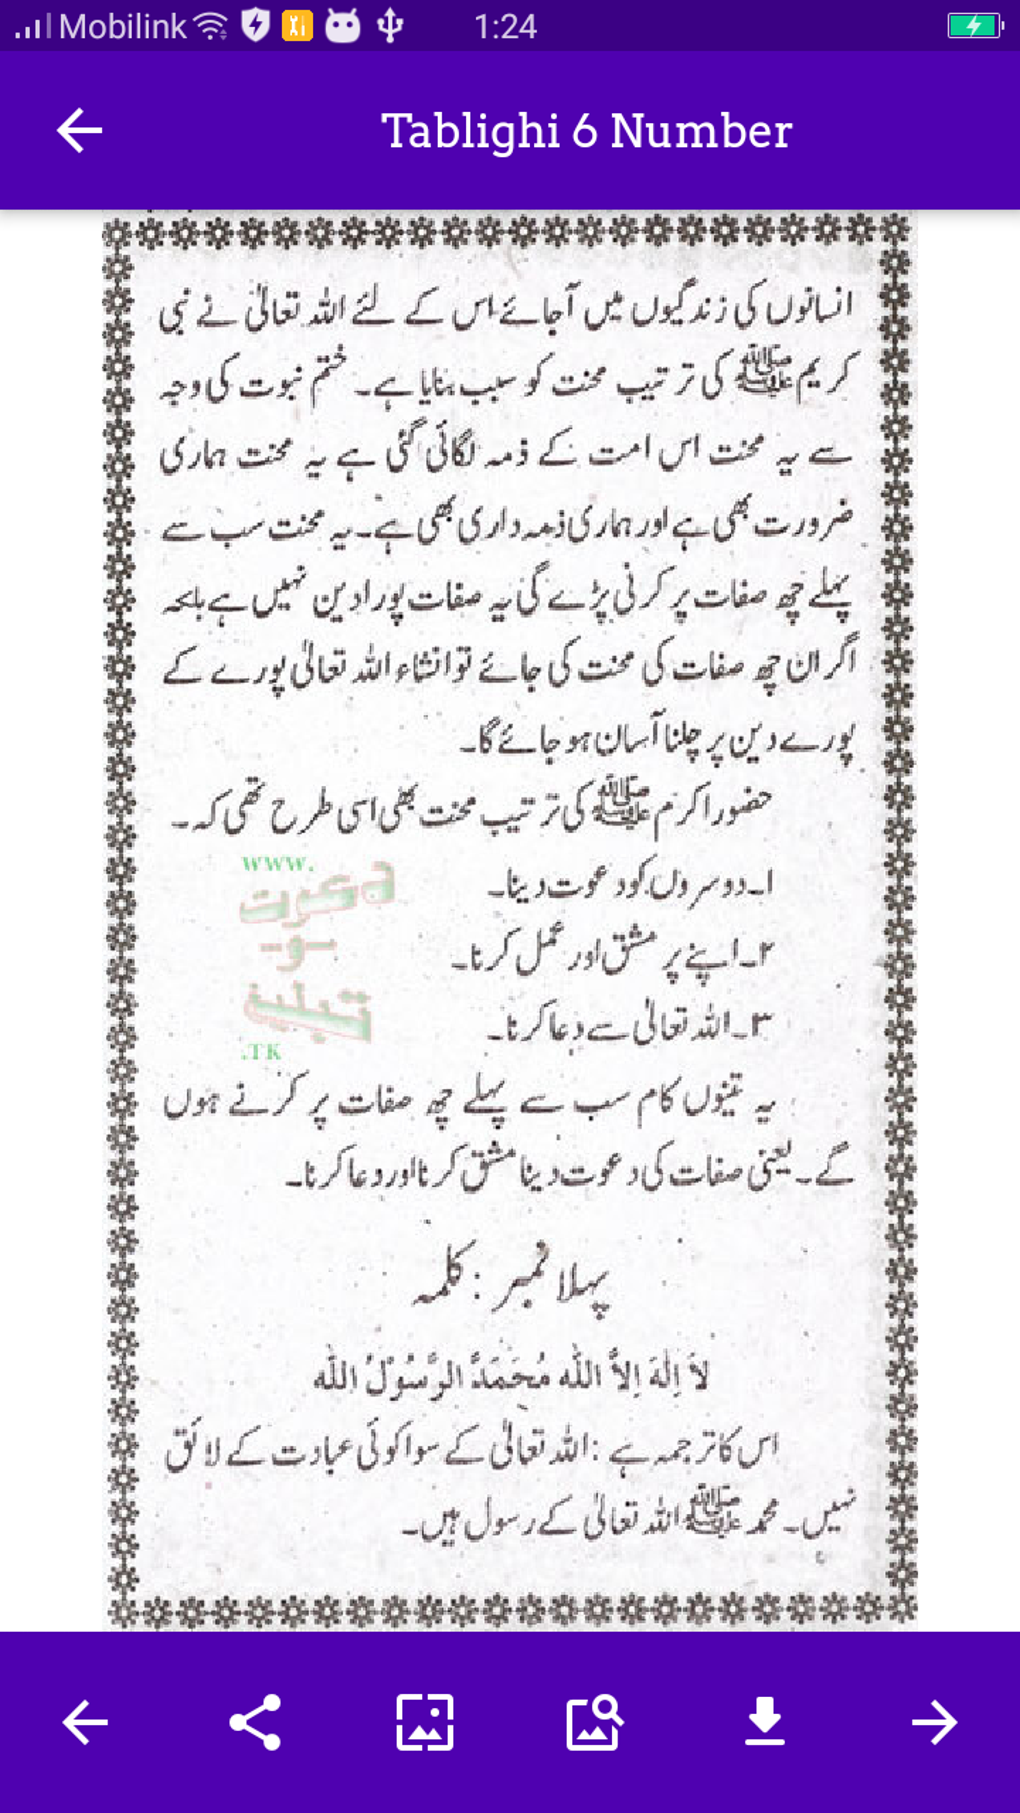 Mobilink 1:24
Tablighi 6 Number
انسانوں کی زندگیوں میں آجائے اس کے لئے اللہ تعالیٰ نے نبی
کریم ﷺ کی ترتیب محنت کو سبب بنایا ہے۔ ختم نبوت کی وجہ
سے یہ محنت اس امت کے ذمہ لگائی گئی ہے یہ محنت ہماری
ضرورت بھی ہے اور ہماری ذمہ داری بھی ہے۔ یہ محنت سب سے
پہلے چھ صفات پر کرنی پڑے گی یہ صفات پورا دین نہیں ہے بلکہ
اگر ان چھ صفات کی محنت کی جائے تو انشاء اللہ تعالیٰ پورے کے
پورے دین پر چلنا آسان ہو جائے گا۔
حضور اکرم ﷺ کی ترتیب محنت بھی اسی طرح تھی کہ۔
۱۔ دوسروں کو دعوت دینا۔
۲۔ اپنے پر مشق اور عمل کرنا۔
۳۔ اللہ تعالیٰ سے دعا کرنا۔
www.
دعوت
-و-
تبلیغ
.TK
یہ تینوں کام سب سے پہلے چھ صفات پر کرنے ہوں
گے۔ یعنی صفات کی دعوت دینا مشق کرنا اور دعا کرنا۔
پہلا نمبر : کلمہ
لاَ اِلٰهَ اِلاَّ اللّٰه مُحَمَّدٌ الرَّسُوْلُ اللّٰه
اس کا ترجمہ ہے : اللہ تعالیٰ کے سوا کوئی عبادت کے لائق
نہیں۔ محمد ﷺ اللہ تعالیٰ کے رسول ہیں۔